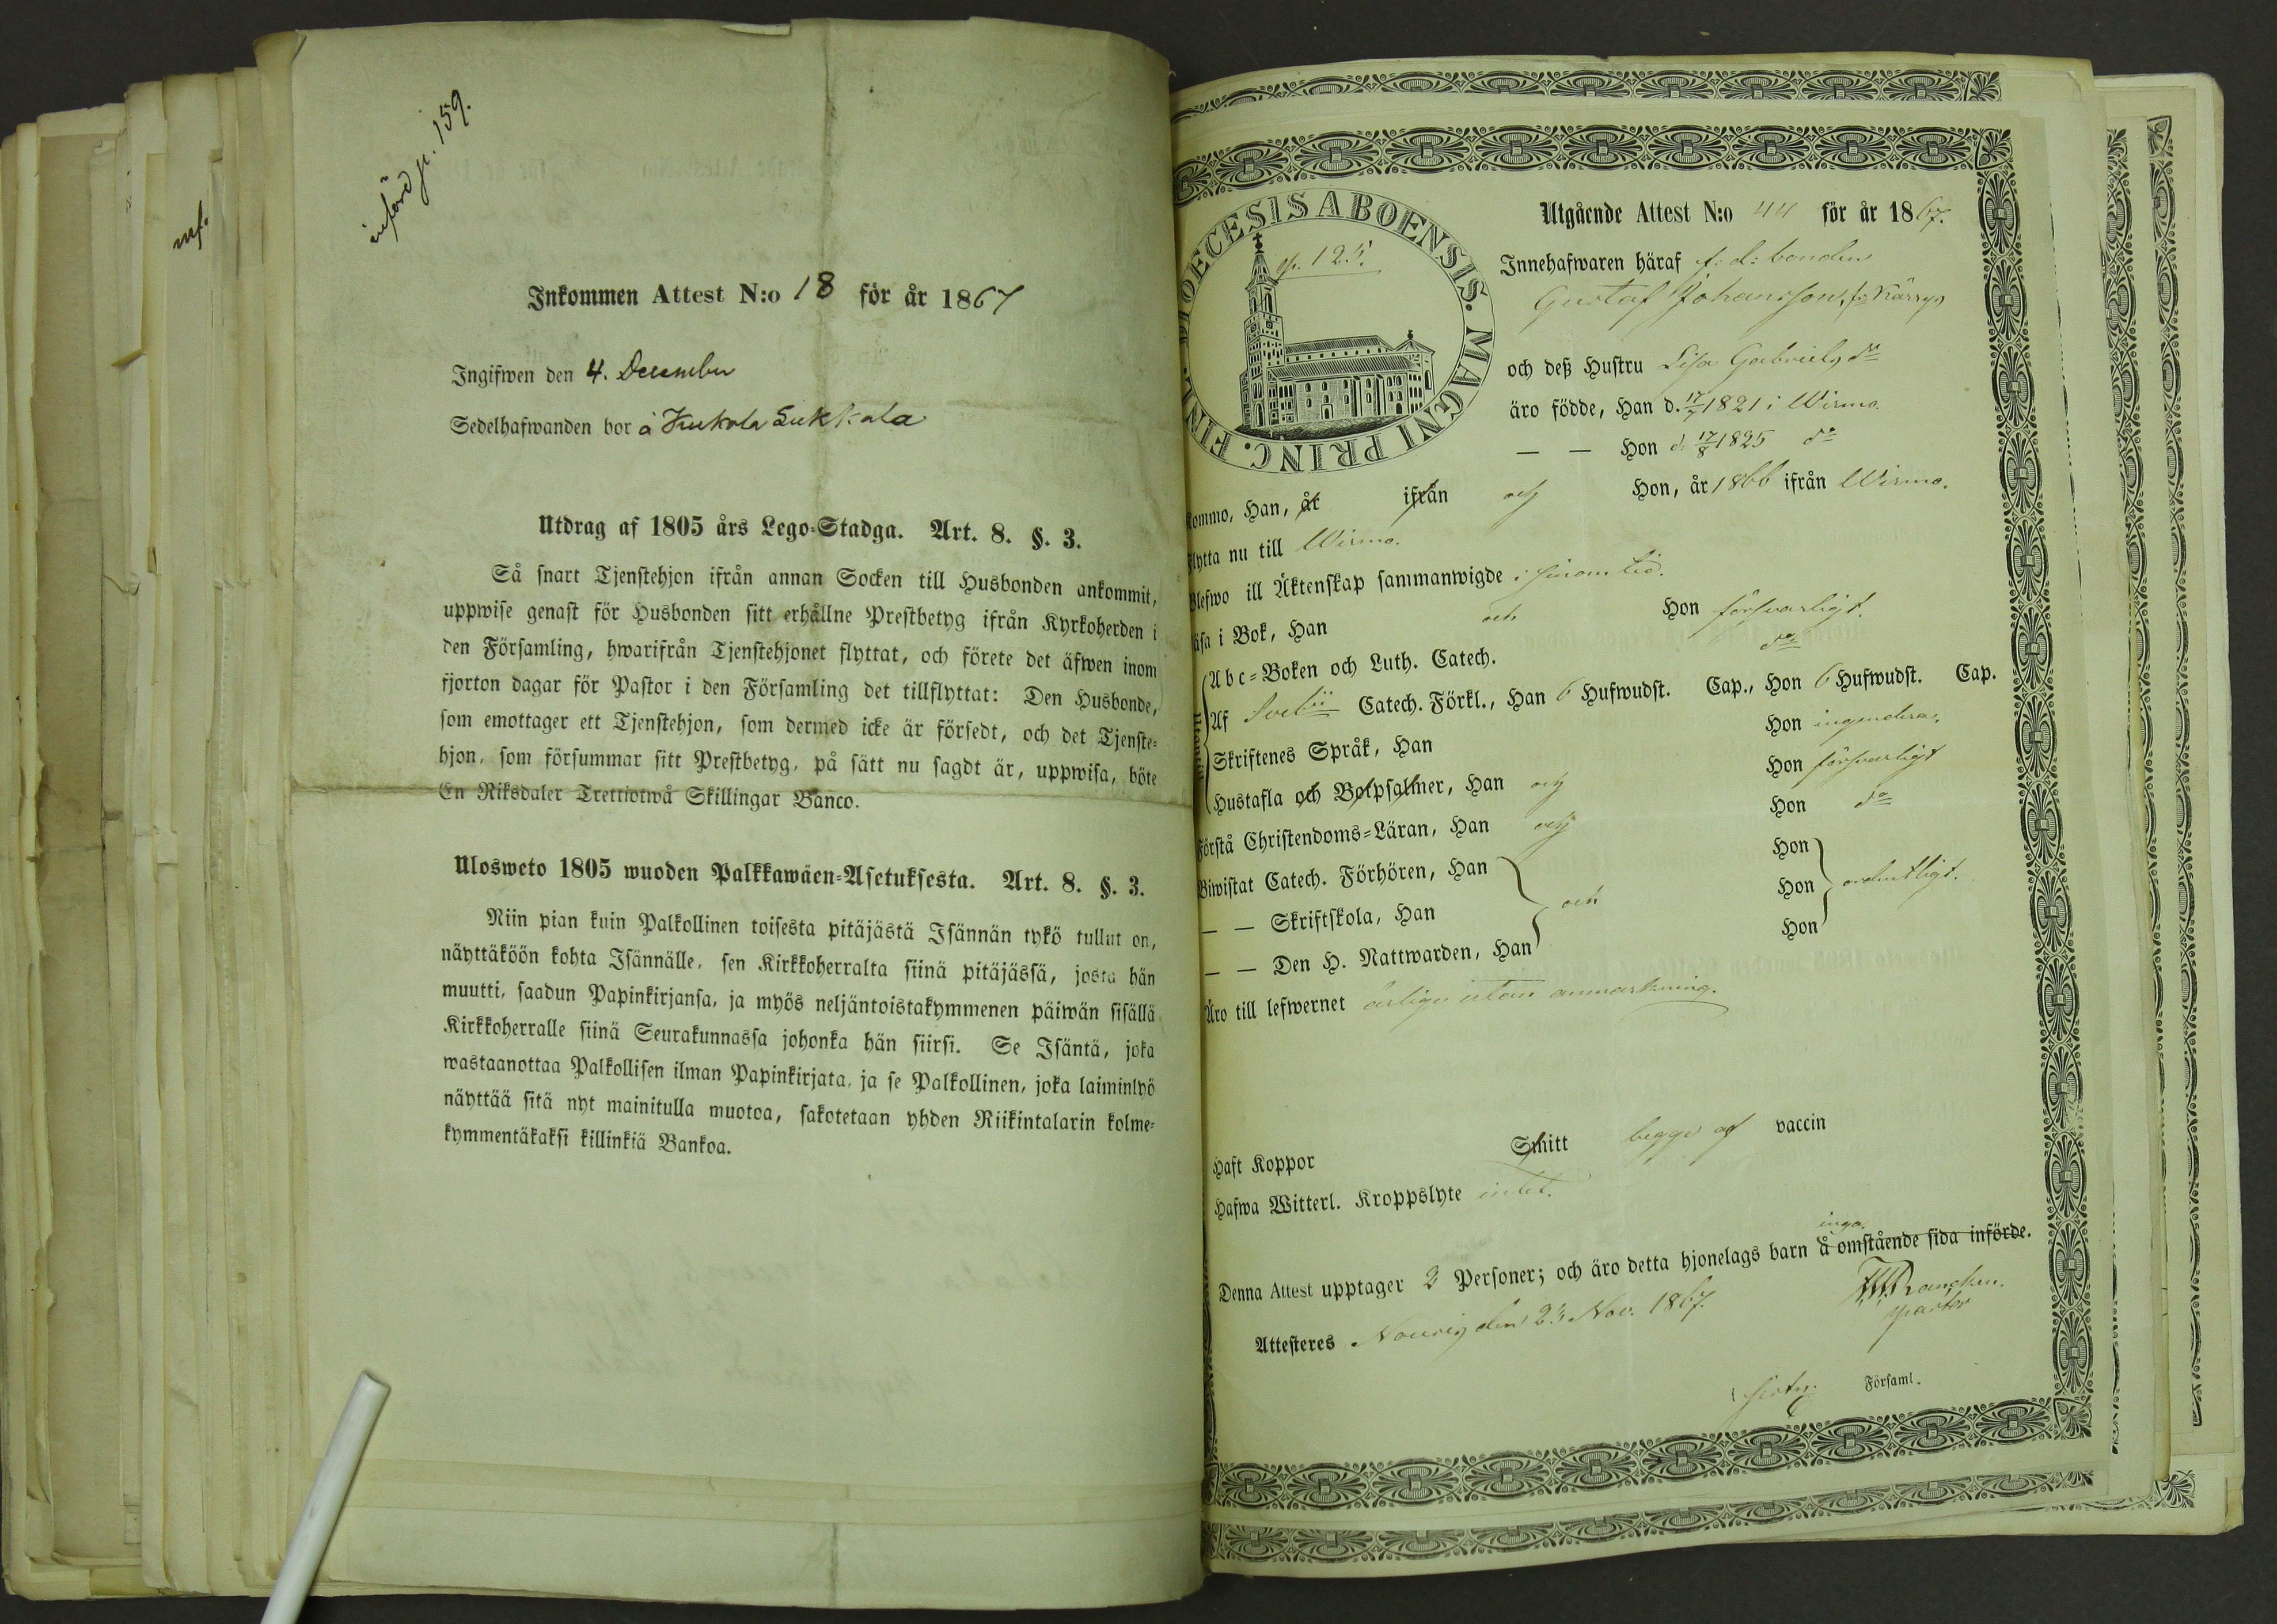 införd p. 159.
inf.
Inkommen Attest N:o 18 för år 1867
Ingifwen den 4. December
Sedelhafwanden bor å Kukola Sukkala
Utdrag af 1805 års Lego-Stadga. Art. 8. §. 3.
Så snart Tjenstehjon ifrån annan Socken till Husbonden ankommit,
uppwise genast för Husbonden sitt erhållne Prestbetyg ifrån Kyrkoherden i
den Församling, hwarifrån Tjenstehjonet flyttat, och förete det äfwen inom
fjorton dagar för Pastor i den Församling det tillflyttat: Den Husbonde,
som emottager ett Tjenstehjon, som dermed icke är försedt, och det Tjenste-
hjon, som försummar sitt Prestbetyg, på sätt nu sagdt är, uppwisa, böte
En Riksdaler Trettiotwå Skillingar Banco.
Ulosweto 1805 wuoden Palkkawäen-Asetuksesta. Art. 8. §. 3.
Niin pian kuin Palkollinen toisesta pitäjästä Isännän tykö tullut on,
näyttäköön kohta Isännälle, sen Kirkkoherralta siinä pitäjässä, josta hän
muutti, saadun Papinkirjansa, ja myös neljäntoistakymmenen päiwän sisällä
Kirkkoherralle siinä Seurakunnassa johonka hän siirsi. Se Isäntä, joka
wastaanottaa Palkollisen ilman Papinkirjata, ja se Palkollinen, joka laiminlyö
näyttää sitä nyt mainitulla muotoa, sakotetaan yhden Riikintalarin kolme-
kymmentäkaksi killinkiä Bankoa.
DIOECESIS ABOENSIS. MAGNI PRINC. FINL.
p. 125.
Utgående Attest N:o 44 för år 1867.
Innehafwaren häraf f. d: bonden
Gustaf Johansson, fr.
och deß Hustru Lisa Gabrielsd:r
äro födde, Han d. 17/7 1821 i Wirmo.
— — Hon d. 17/8 1825 d:o
Kommo, Han, år ifrån och Hon, år 1866 ifrån Wirmo.
Flytta nu till Wirmo.
Blefwo ill Äktenskap sammanwigde i sinom tid.
Läsa i Bok, Han och Hon försvarligt.
Abc-Boken och Luth. Catech. d:o
Af Svebii Catech. Förkl., Han 6 Hufwudst. Cap., Hon 6 Hufwudst. Cap.
Skriftenes Språk, Han Hon ingendera.
Hustafla och Botpsalmer, Han och Hon försvarligt
Förstå Christendoms-Läran, Han och Hon d:o
Biwistat Catech. Förhören, Han Hon
— — Skriftskola, Han och Hon ordentligt.
— — Den H. Nattwarden, Han Hon
Äro till lefwernet ärliga utan anmärkning.
Haft Koppor Smitt begge af vaccin
Hafwa Witterl. Kroppslyte intet.
inga.
Denna Attest upptager 2 Personer; och äro detta hjonelags barn å omstående sida införde.
Attesteres Nousis den 23 Nov. 1867.
Pastor
Församl.